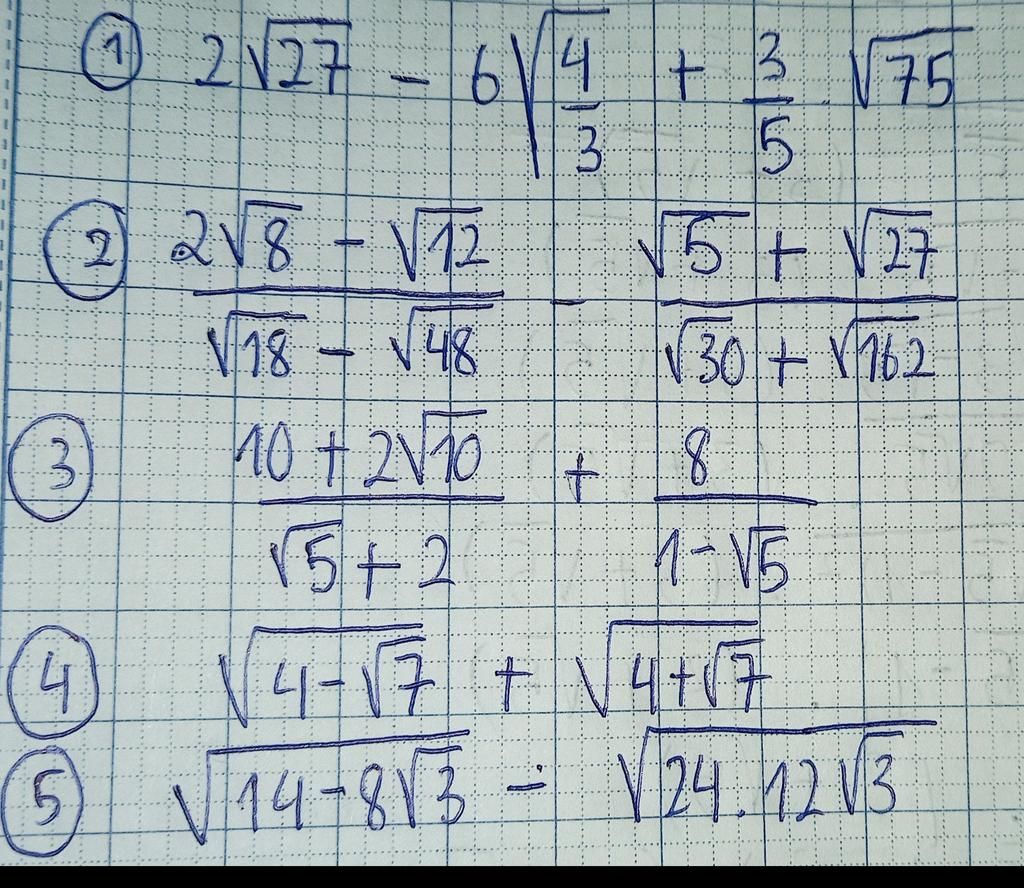 ① 2√27 - 6√(4/3) + 3/5 √75
② (2√8 - √12)/(√18 - √48) - (√5 + √27)/(√30 + √162)
③ (10 + 2√10)/(√5 + 2) + 8/(1 - √5)
④ √(4 - √7) + √(4 + √7)
⑤ √(14 - 8√3) - √(24 . 12√3)